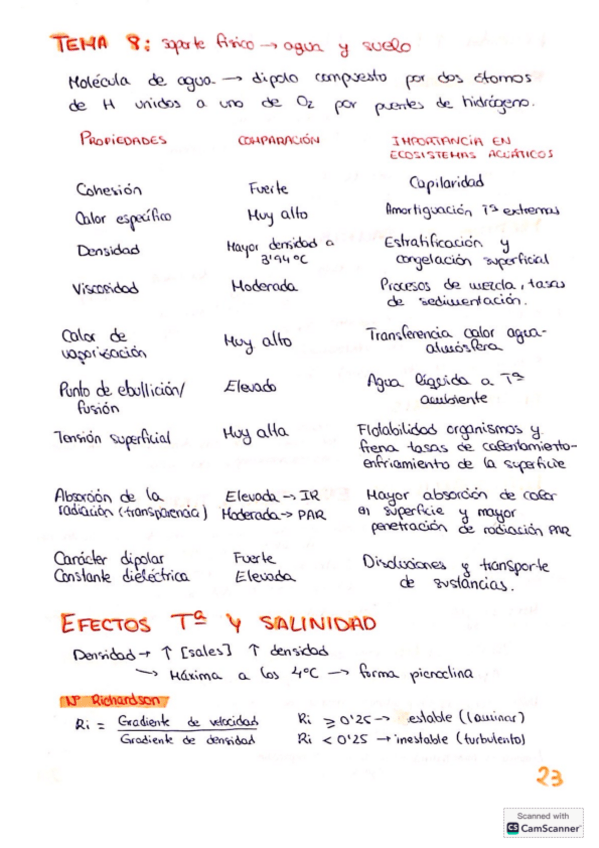 TEMA 8: soporte físico → agua y suelo
Molécula de agua → dipolo compuesto por dos átomos
de H unidos a uno de O2 por puentes de hidrógeno.
PROPIEDADES COMPARACIÓN IMPORTANCIA EN
ECOSISTEMAS ACUÁTICOS
Cohesión Fuerte Capilaridad
Calor específico Muy alto Amortiguación Tª extremas
Densidad Mayor densidad a
3'94ºC Estratificación y
congelación superficial
Viscosidad Moderada Procesos de mezcla, tasas
de sedimentación.
Calor de
vaporización Muy alto Transferencia calor agua-
atmósfera
Punto de ebullición/
fusión Elevado Agua líquida a Tª
ambiente
Tensión superficial Muy alta Flotabilidad organismos y
frena tasas de calentamiento-
enfriamiento de la superficie
Absorción de la
radiación (transparencia) Elevada → IR
Moderada → PAR Mayor absorción de calor
en superficie y mayor
penetración de radiación PAR
Carácter dipolar Fuerte Disoluciones y transporte
Constante dieléctrica Elevada de sustancias.
EFECTOS Tª Y SALINIDAD
Densidad → ↑ [sales] ↑ densidad
→ Máxima a los 4ºC → forma picnoclina
Nº Richardson
Ri = Gradiente de velocidad / Gradiente de densidad
Ri ≥ 0'25 → estable (laminar)
Ri < 0'25 → inestable (turbulento)
23
Scanned with
CS CamScanner